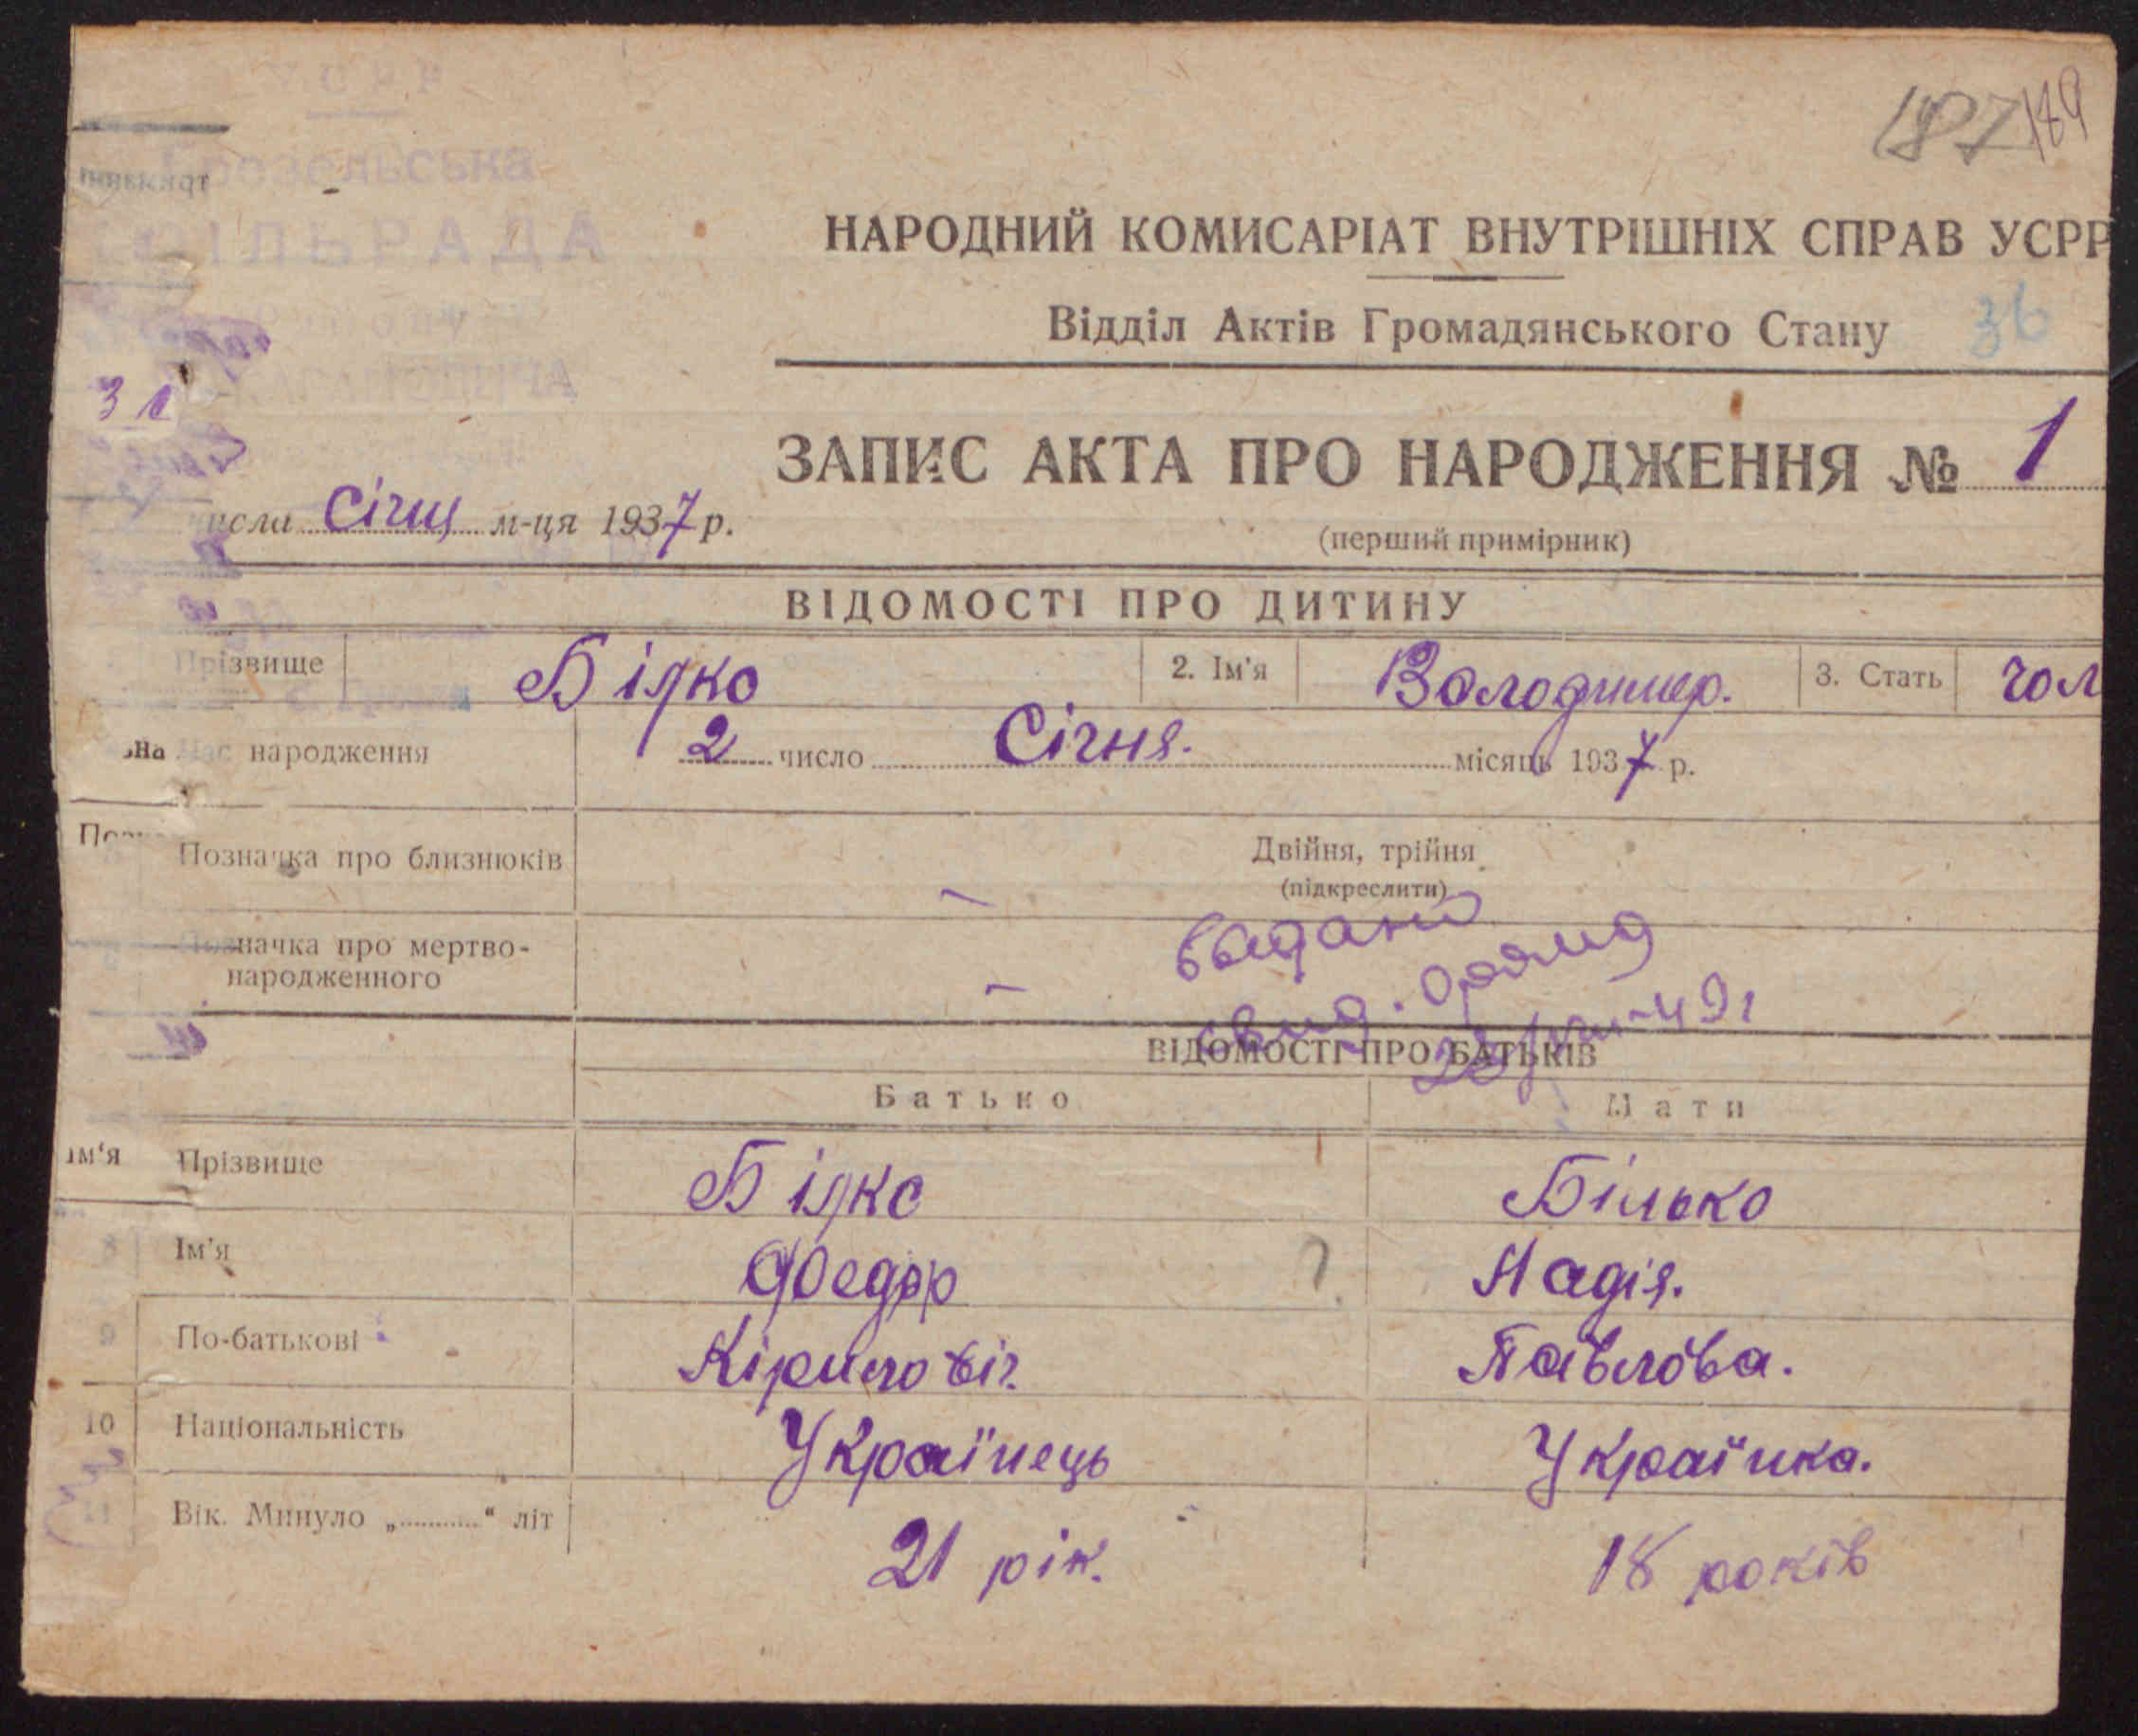 УСРР
187 189
СІЛЬРАДА
НАРОДНИЙ КОМИСАРІАТ ВНУТРІШНІХ СПРАВ УСРР
Відділ Актів Громадянського Стану 36
ЗАПИС АКТА ПРО НАРОДЖЕННЯ № 1
числа Січня м-ця 1937 р.
(перший примірник)
ВІДОМОСТІ ПРО ДИТИНУ
Прізвище Білко 2. Ім'я Володимер. 3. Стать чол
Час народження 2 число Січня. місяць 1937 р.
Позначка про близнюків Двійня, трійня
(підкреслити)
Позначка про мертво-
народженного
выдано
свид.
ВІДОМОСТІ ПРО БАТЬКІВ
Батько Мати
ім'я Прізвище Білко Білько
8 Ім'я Федор Надія.
9 По-батькові Кірилович. Павлова.
10 Національність Українець Українка.
11 Вік. Минуло „..........“ літ 21 рік. 18 років